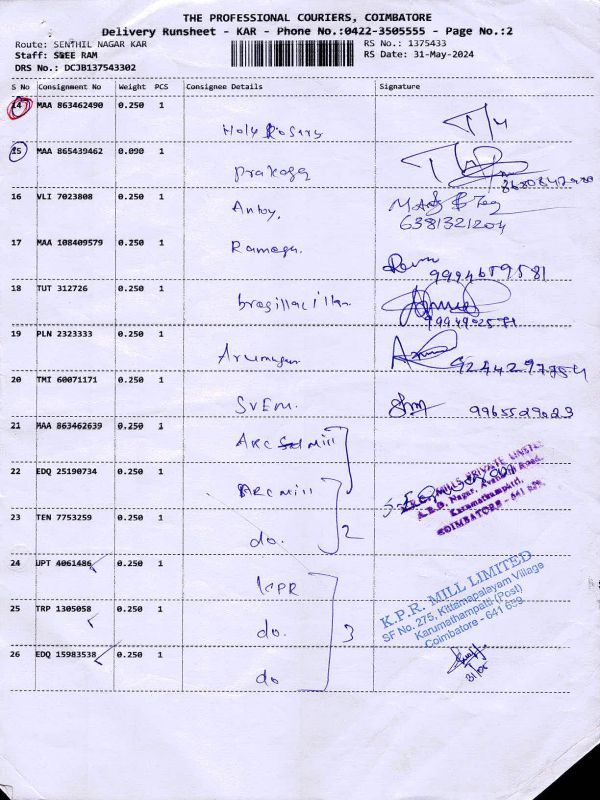 THE PROFESSIONAL COURIERS, COIMBATORE
Delivery Runsheet - KAR - Phone No.:0422-3505555 - Page No.:2
Route: SENTHIL NAGAR KAR
RS No.: 1375433
Staff: SREE RAM
RS Date: 31-May-2024
DRS No.: DCJB137543302
S No Consignment No Weight PCS Consignee Details Signature
14 MAA 863462490 0.250 1
Holy Rosary
15 MAA 865439462 0.090 1
Prakash
16 VLI 7023808 0.250 1
Antoy,
6381321204
17 MAA 108409579 0.250 1
Ramesh.
9994659581
18 TUT 312726 0.250 1
19 PLN 2323333 0.250 1
Arumugam
20 TMI 60071171 0.250 1
SVEM.
9965529023
21 MAA 863462639 0.250 1
ARC Mill
22 EDQ 25190734 0.250 1
ARC Mill
MILLS PRIVATE LIMITED
A.R.C. Nagar, Avanashi Road,
Karumathampatti,
COIMBATORE - 641 659.
23 TEN 7753259 0.250 1
do.
2
24 UPT 4061486 0.250 1
KPR
K.P.R. MILL LIMITED
SF No. 275, Kittampalayam Village
Karumathampatti (Post)
Coimbatore - 641 659
25 TRP 1305058 0.250 1
do.
3
26 EDQ 15983538 0.250 1
do
31/05